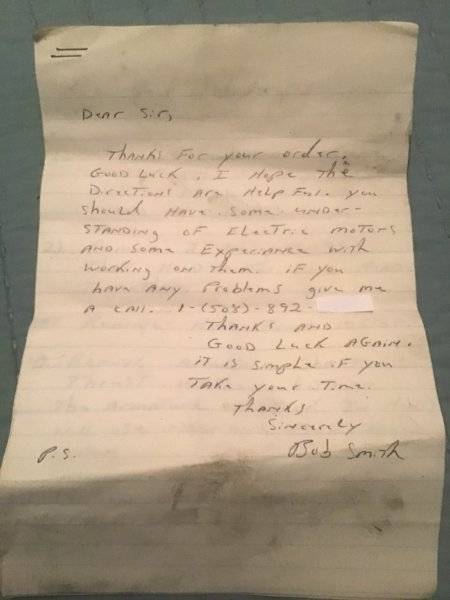 Dear Sir,
Thanks For your order.
Good Luck. I Hope The
Directions Are Help Full you
should Have some under-
standing of Electric motors
and some Experiance with
working on them. if you
have any Problems give me
a call. 1-(508)-892-
Thanks and
Good Luck Again.
it is simple if you
Take your Time.
Thanks
Sincerely
Bob Smith
P.S.